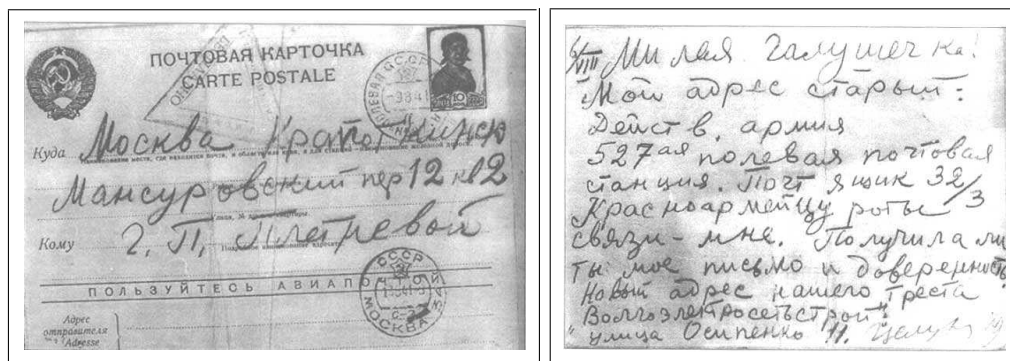 ПОЧТОВАЯ КАРТОЧКА
CARTE POSTALE
ПОЛЕВАЯ СССР
-9 8 41
10
Куда Москва Кропоткинск
Мансуровский пер 12 к 12
Кому Г. П. Плетневой
СССР
МОСКВА
ПОЛЬЗУЙТЕСЬ АВИАПОЧТОЙ
Адрес
отправителя
Adresse
6/VIII Милая Галушечка!
Мой адрес старый:
Действ. армия
527ая полевая почтовая
станция. Почт ящик 32/3
Красноармейцу роты
связи - мне. Получила ли
ты мое письмо и доверенность
Новый адрес нашего Треста
"Волгоэлектросетьстрой"
улица Осипенко 11. Целую